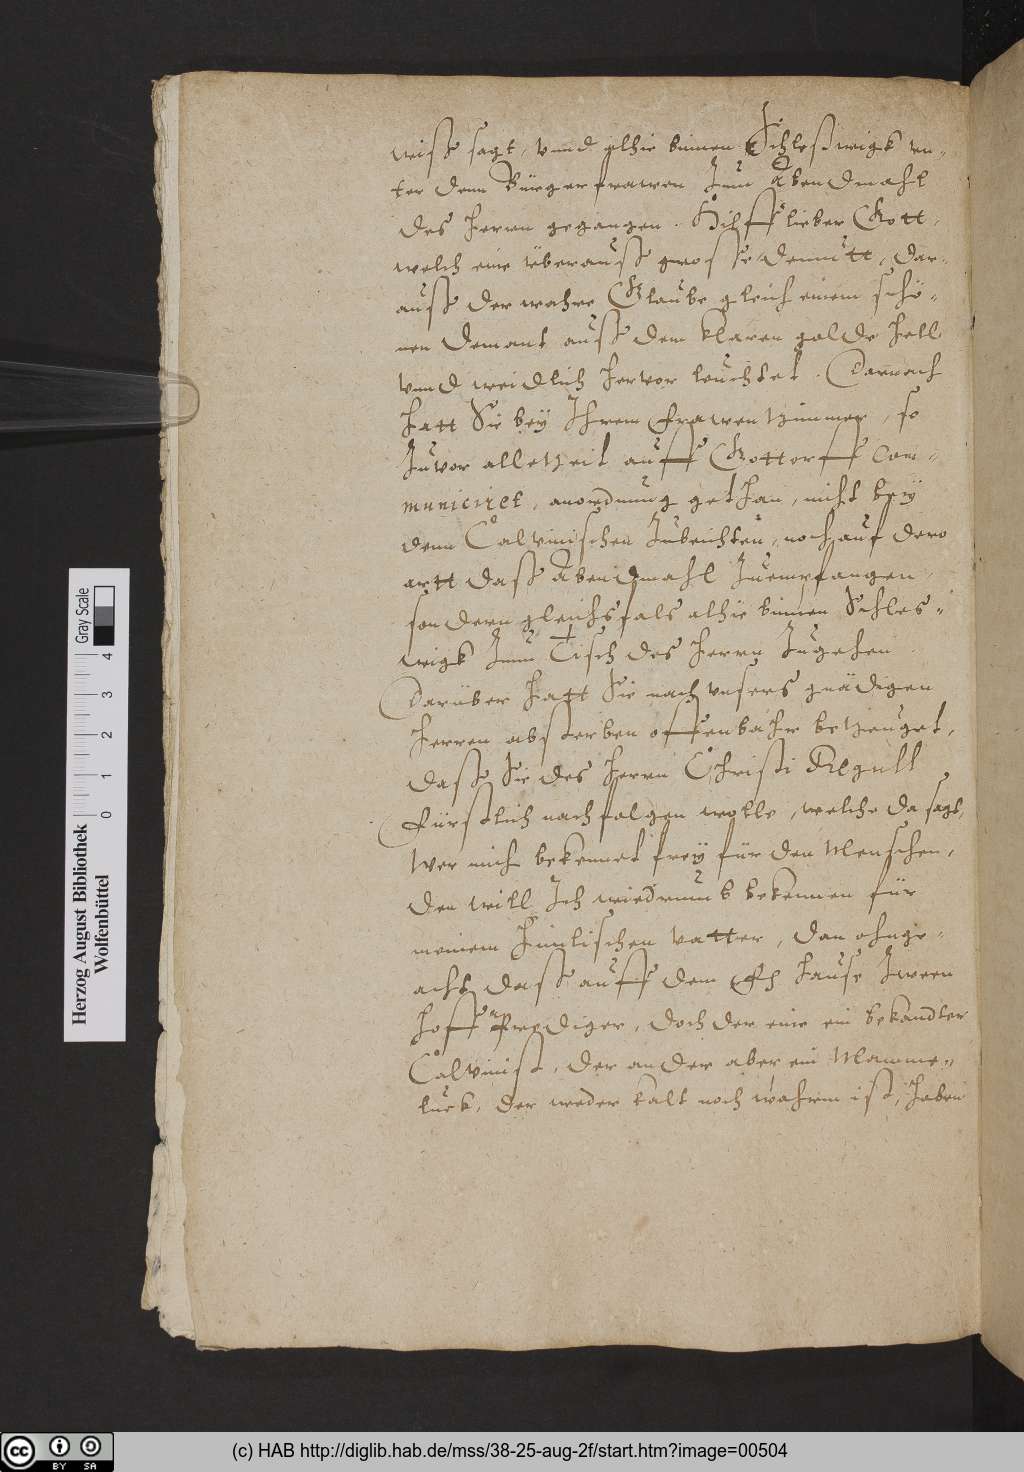 wisse sagt, vnnd alhie binnen Schleßwigk vn-
ter denn Bürgerfrawen Zum Abendmahl
des Herrn gegangen. Hilff lieber Gott,
welch eine überauß grosse demutt, dar-
auß der wahre Glaube gleich einem schö-
nen Demant auß dem klaren golde hell
vnnd weidlich hervor leuchtet. Darnach
hatt Sie bey Ihrem Frawen Zimmer, so
Zuvor alletzeit auff Gottorff Com-
municiret, anordnung gethan, nicht bey
denn Calvinischen Zubeichten, noch auf dero
artt daß Abendmahl Zuempfangen,
sondern gleichsfals alhie binnen Schles-
wigk Zum Tisch des Herrn Zugehen.
Darüber hatt Sie nach vnsers gnädigen
Herren absterben offenbahr betzeuget,
daß Sie des Herrn Christi Regull
Fürstlich nachfolgen wolle, welche da sagt,
Wer mich bekennet frey für den Menschen,
den will Ich wiedrumb bekennen für
meinem Himlischen Vatter, dan ohnge-
acht daß auff dem Hause Zween
Hoff Prediger, doch der eine ein bekandter
Calvinist, der ander aber ein Mamme-
luck, der weder kalt noch wahrm ist, haben
Herzog August Bibliothek
Wolfenbüttel
Gray Scale
0 1 2 3 4
cc BY SA
(c) HAB http://diglib.hab.de/mss/38-25-aug-2f/start.htm?image=00504